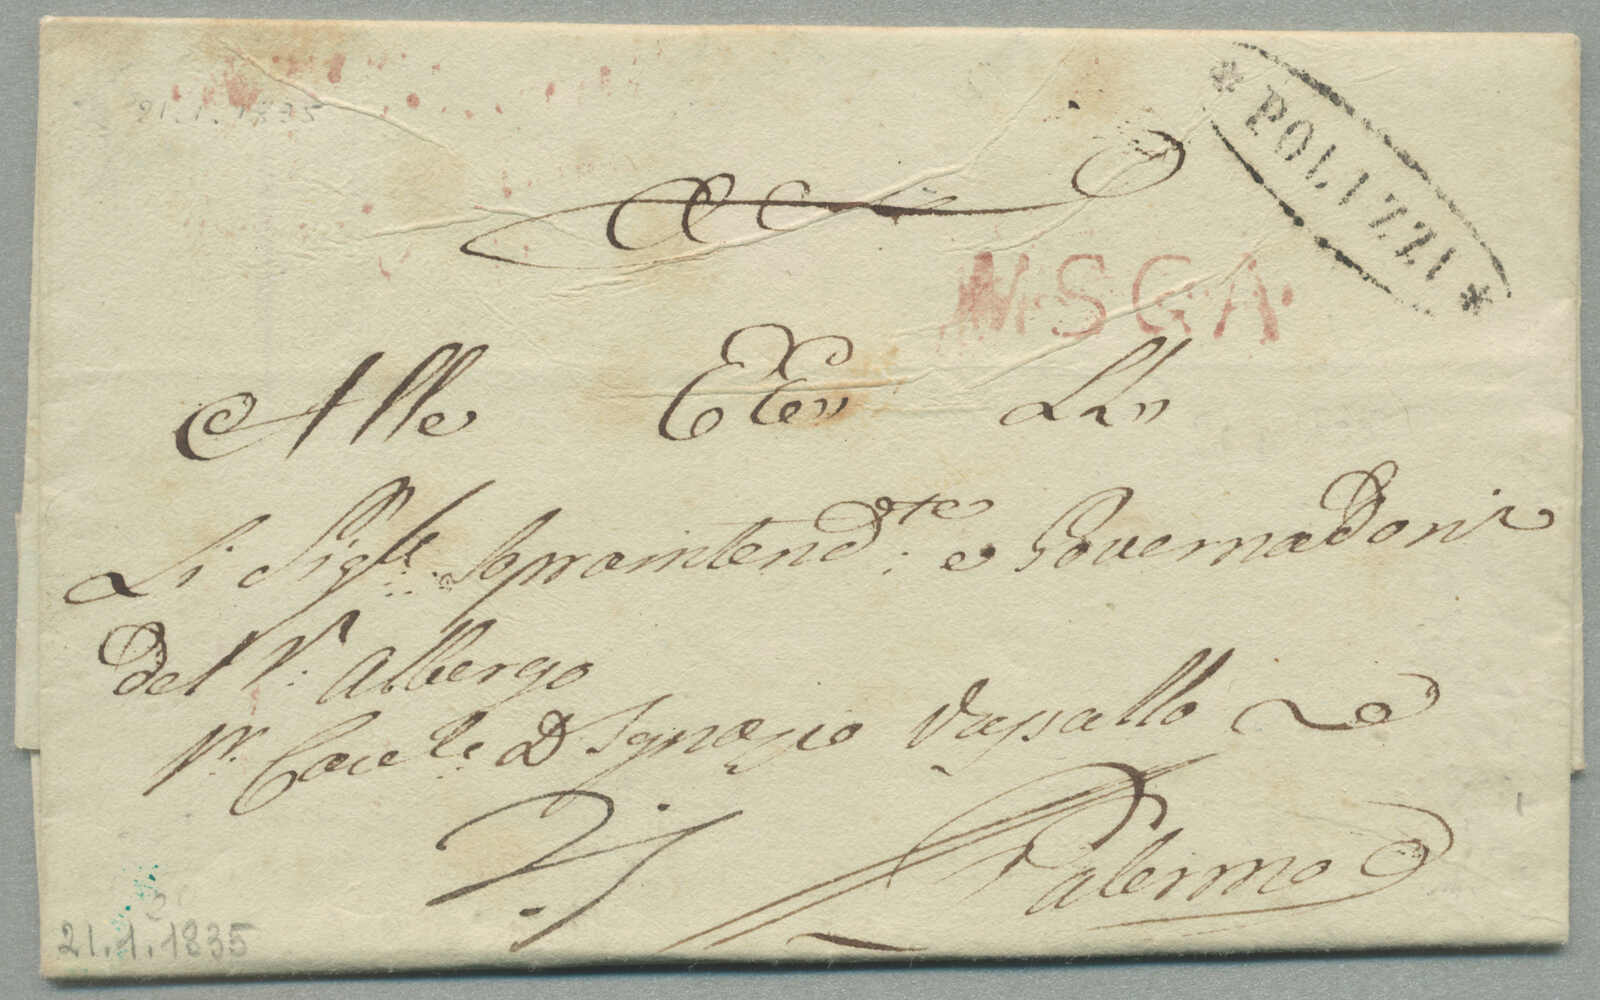 21.1.1835
* POLIZZI *
M.S.G.A.
Alle EEe
Li Sigri Sopraintendte: e Governadori
del Rl: Albergo
Pr: D Ignazio Vassallo
Palermo
21.1.1835